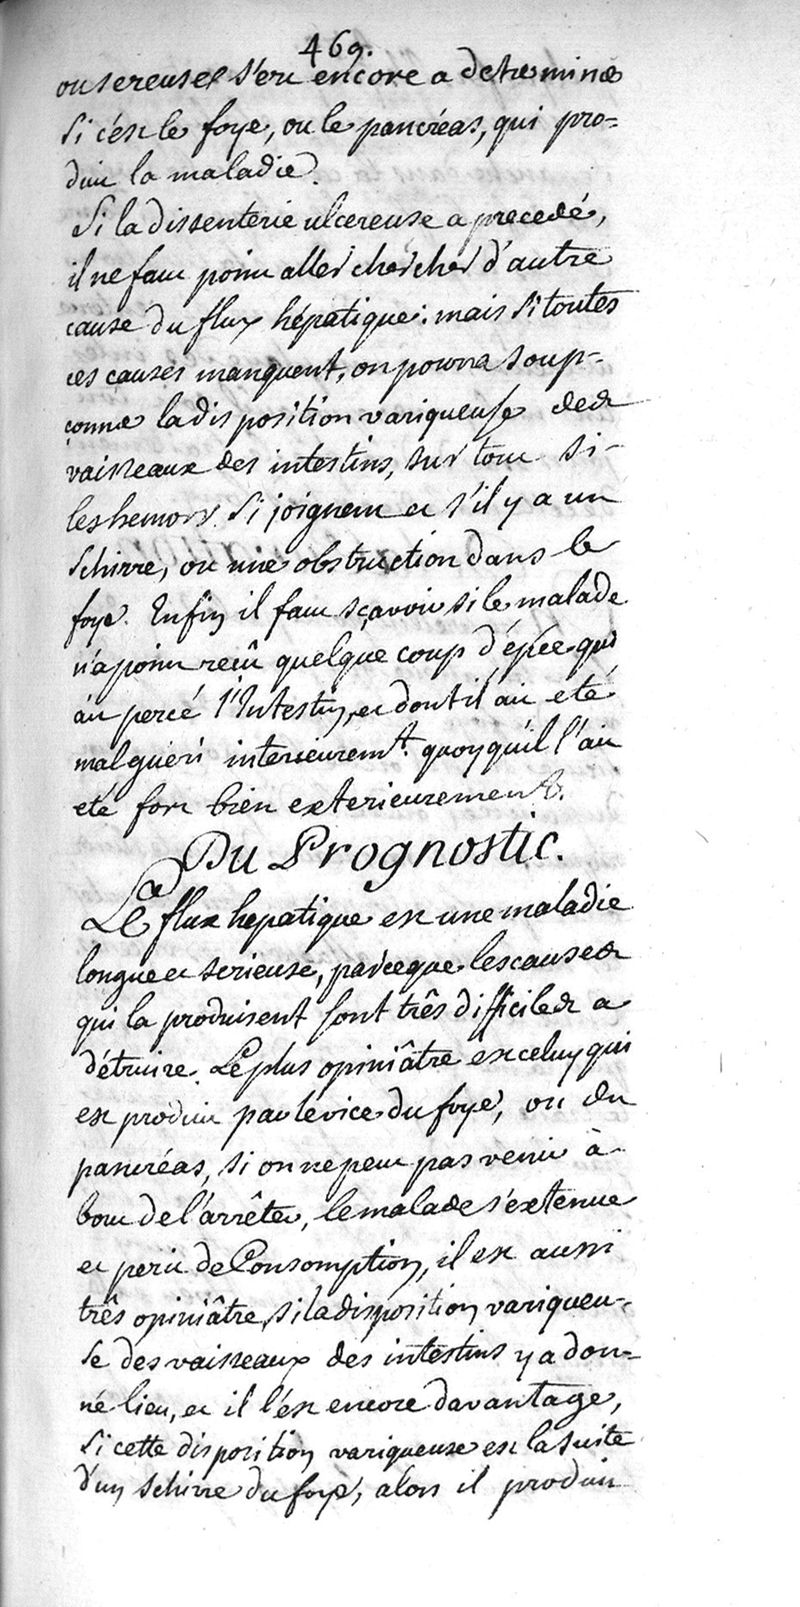 469.
ou sereuse sert encore a determiner
si c'est le foye, ou le pancréas, qui pro=
duit la maladie.
Si la dissenterie ulcereuse a precedé,
il ne faut point aller chercher d'autre
cause du flux hépatique: mais si toutes
ces causes manquent, on pourra soup-
çonner la disposition variqueuse des
vaisseaux des intestins, sur tout si-
les hemorr. si joignent et s'il y a un
schirre, ou une obstruction dans le
foye. Enfin il faut sçavoir si le malade
n'a point recû quelque coup d'épée qui
ait percé l'Intestin, et dont il ait eté
mal gueri interieuremt. quoyqu'il l'ait
eté fort bien exterieurement.
Du Prognostic.
Le flux hepatique est une maladie
longue et serieuse, parceque les causes
qui la produisent sont três difficiles a
détruire. Le plus opiniâtre est celuy qui
est produit par le vice du foye, ou du
pancréas, si on ne peut pas venir à
bout de l'arrêter, le malade s'extenue
et perit de Consomption, il est aussi
três opiniâtre, si la disposition variqueu-
se des vaisseaux des intestins y a don=
né lieu, et il l'est encore davantage,
si cette disposition variqueuse est la suite
d'un schirre du foye, alors il produit